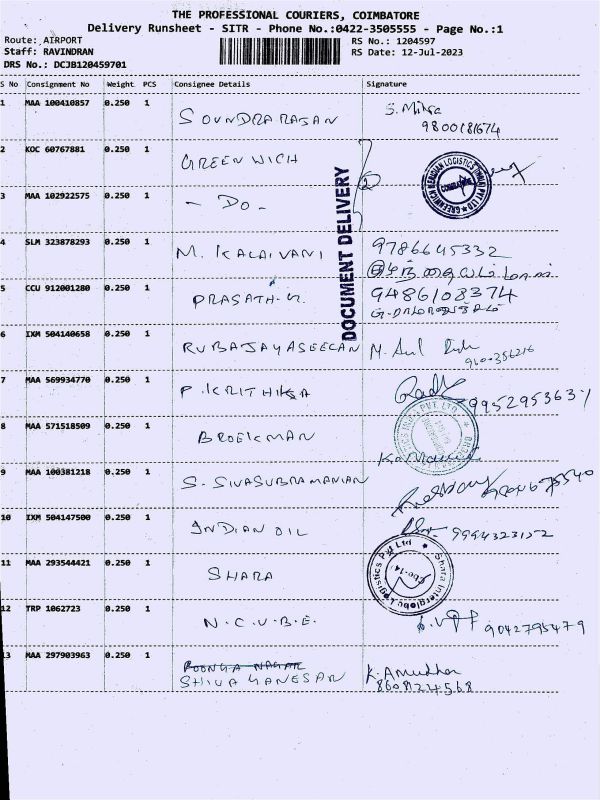 THE PROFESSIONAL COURIERS, COIMBATORE
Delivery Runsheet - SITR - Phone No.:0422-3505555 - Page No.:1
Route: AIRPORT
Staff: RAVINDRAN
DRS No.: DCJB120459701
RS No.: 1204597
RS Date: 12-Jul-2023
S No Consignment No Weight PCS Consignee Details Signature
1 MAA 100410857 0.250 1 SOUNDRARAJAN S. Mitra
9800181674
2 KOC 60767881 0.250 1 GREENWICH
3 MAA 102922575 0.250 1 - DO -
DOCUMENT DELIVERY
4 SLM 323878293 0.250 1 M. KALAIVANI 9786645332
5 CCU 912001280 0.250 1 PRASATH 9486108374
6 IXM 504140658 0.250 1 RUBAJAYASEELAN
9600356216
7 MAA 569934770 0.250 1 P. KRITHIKA
8 MAA 571518509 0.250 1 BROEKMAN
9 MAA 100381218 0.250 1 S. SIVASUBRAMANIAN
10 IXM 504147500 0.250 1 INDIAN OIL 9994323152
11 MAA 293544421 0.250 1 SHARA
Shara Interglobe Logistics Pvt Ltd
12 TRP 1062723 0.250 1 N.C.U.B.E. 9042795479
13 MAA 297903963 0.250 1 POONGA NAGAR K. Amudha
SHIVA GANESAN